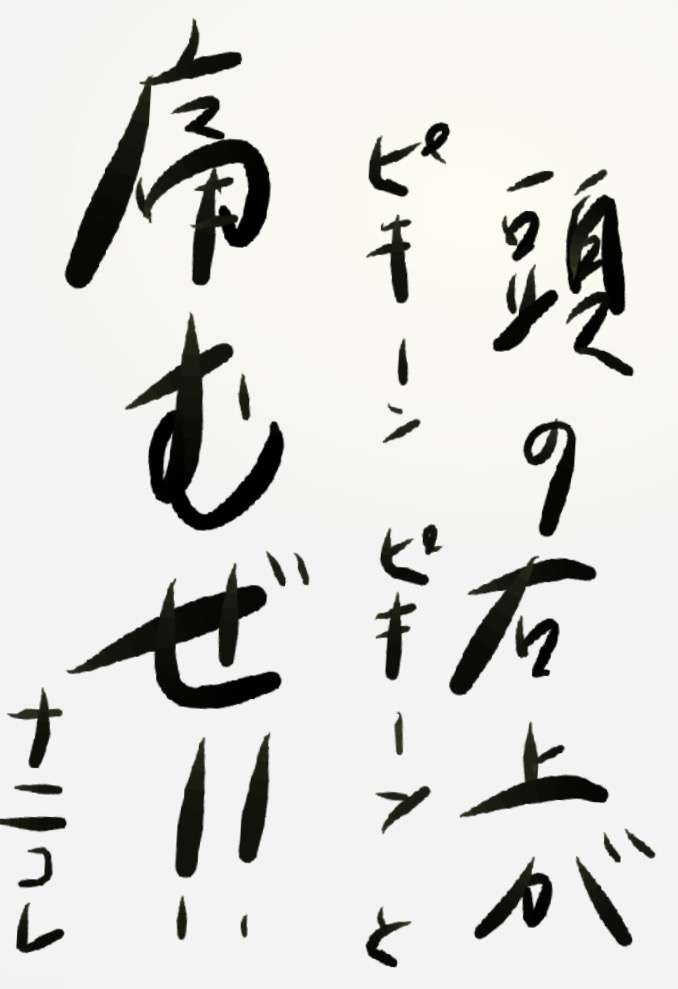 頭の右上が
ピキーンピキーンと
痛むぜ!!
ナニコレ